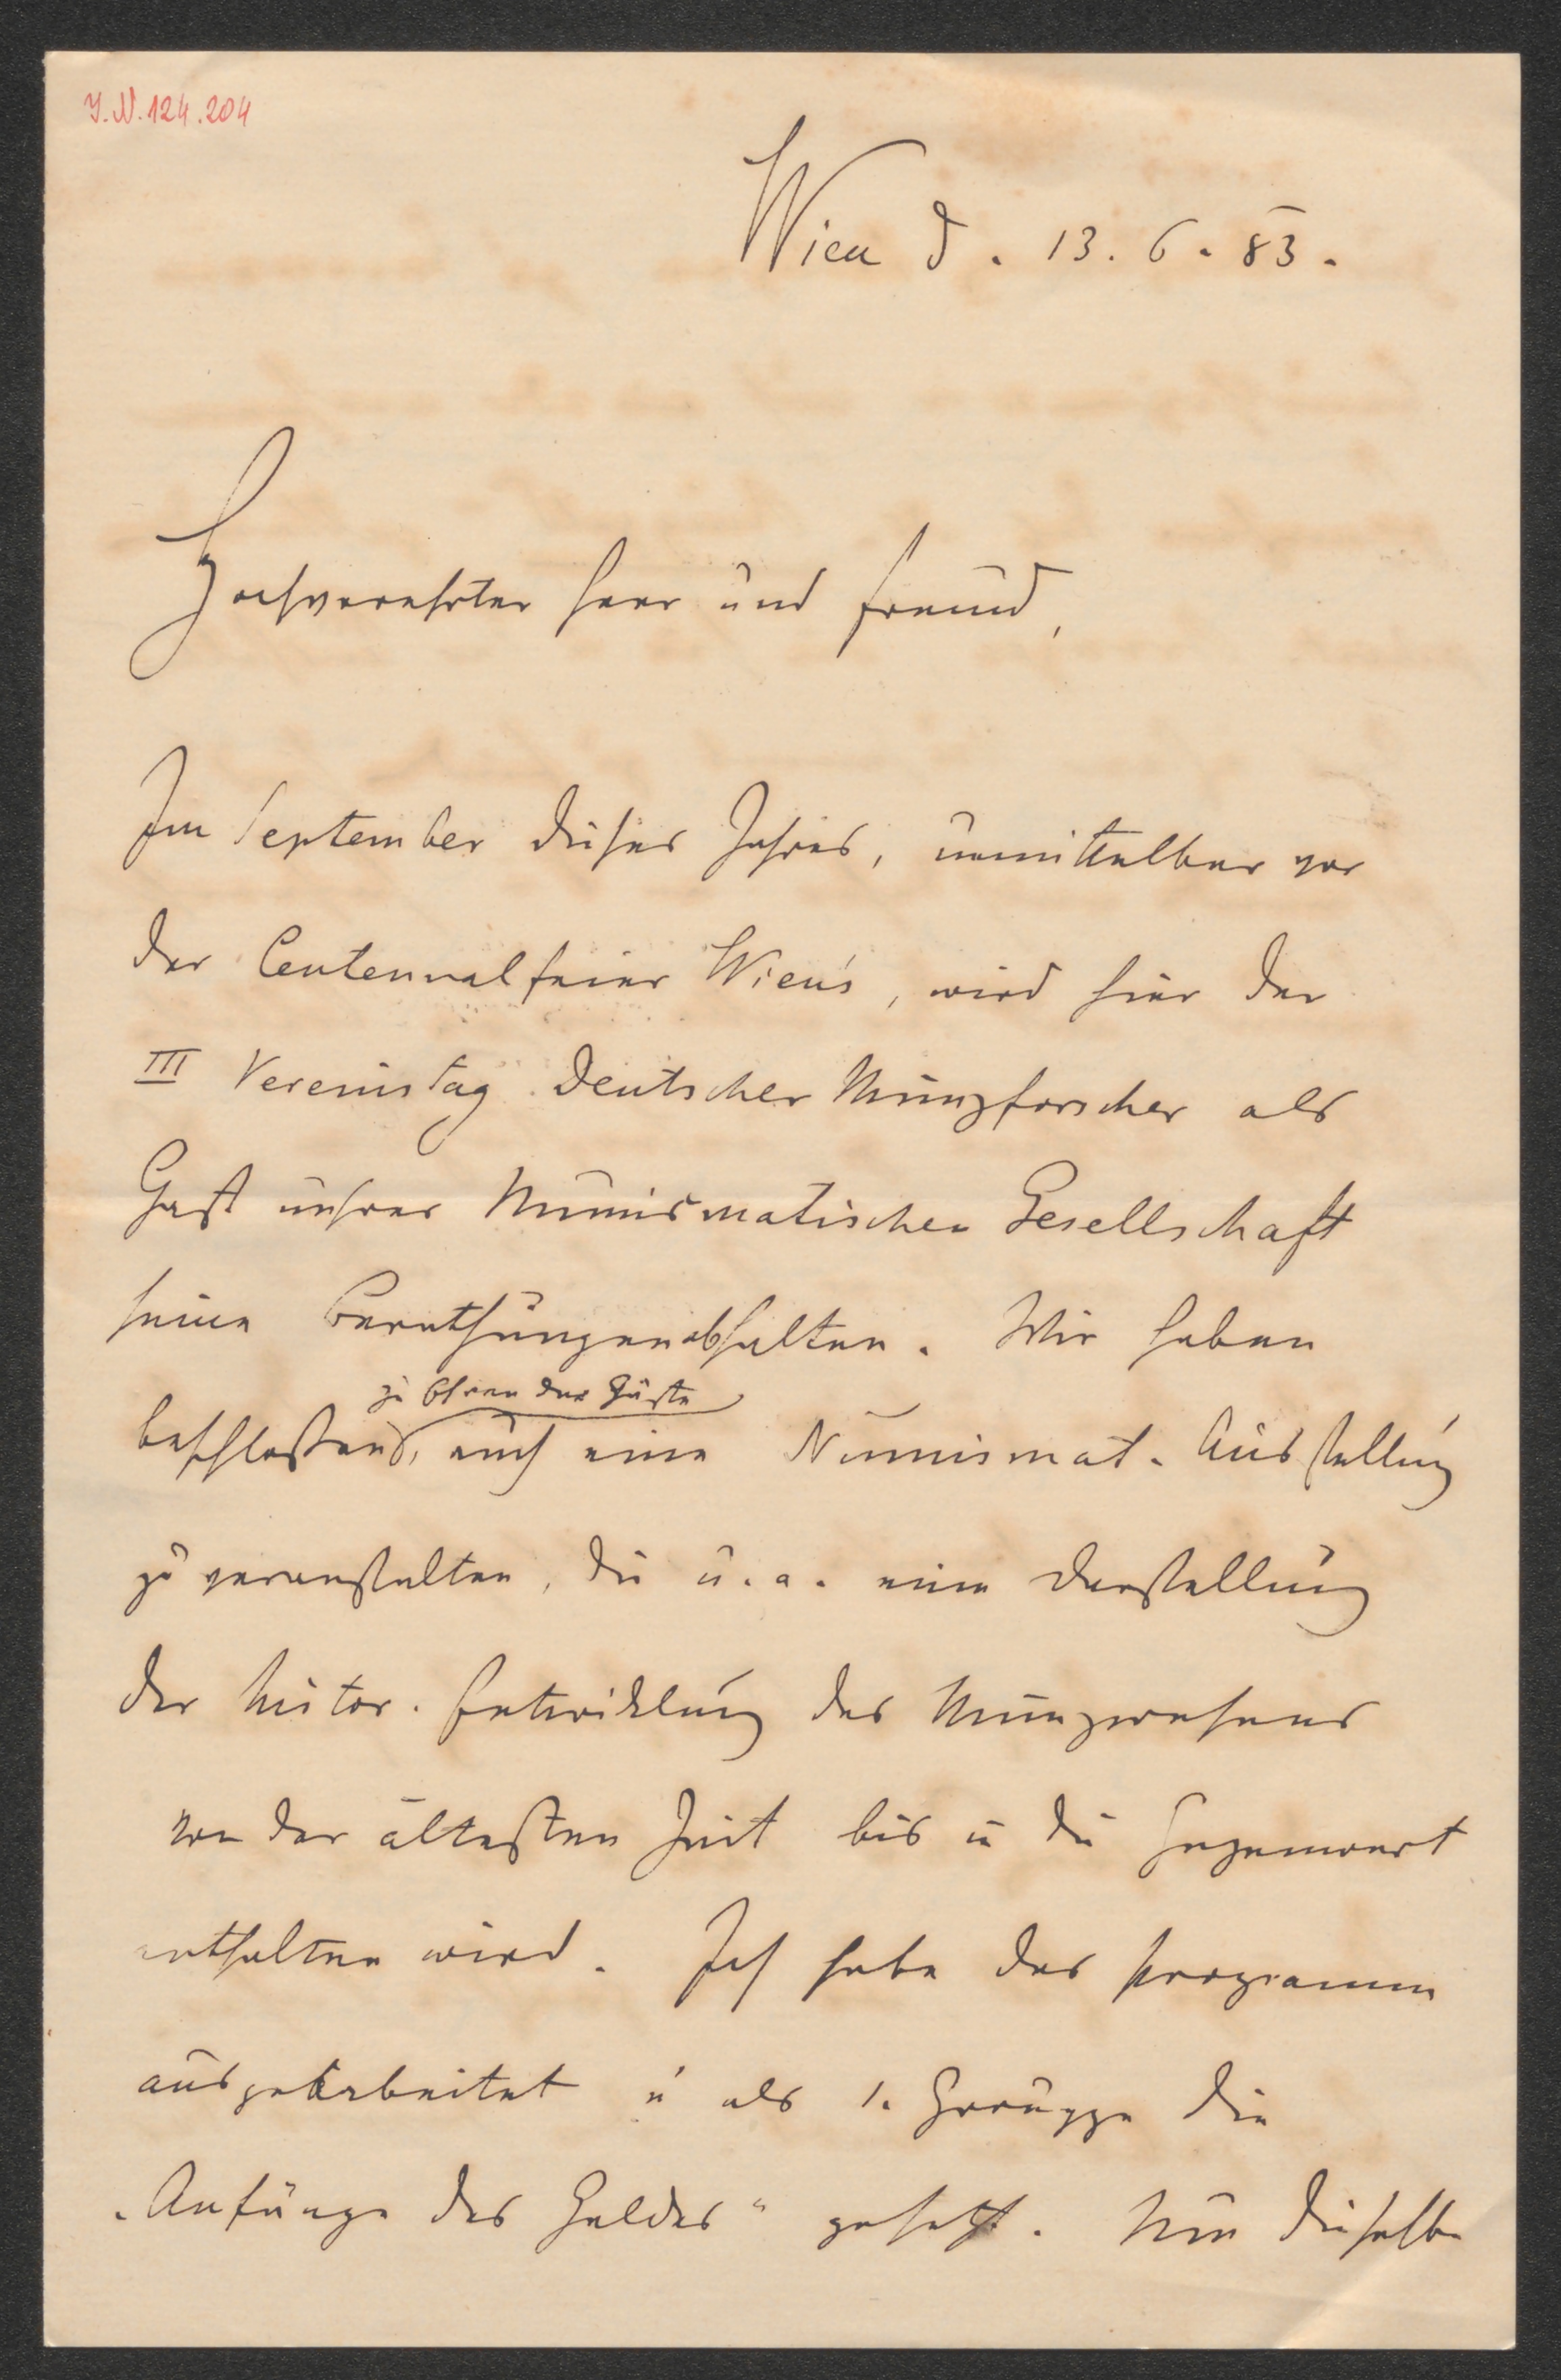 I.N. 124.204
Wien d. 13. 6. 83.
Hochverehrter Herr und Freund,
Im September dieses Jahres, unmittelbar vor
der Centennalfeier Wien's, wird hier der
III Vereinstag Deutscher Münzforscher als
Gast unsrer Numismatischen Gesellschaft
seine Berathungen abhalten. Wir haben
zu Ehren der Gäste
beschlossen, auch eine Numismat. Ausstellung
zu veranstalten, die u. a. eine Darstellung
der histor. Entwicklung des Münzwesens
von der ältesten Zeit bis in die Gegenwart
enthalten wird. Ich habe das Programm
ausgearbeitet u als 1. Gruppe die
„Anfänge des Geldes" gesetzt. Um dieselbe